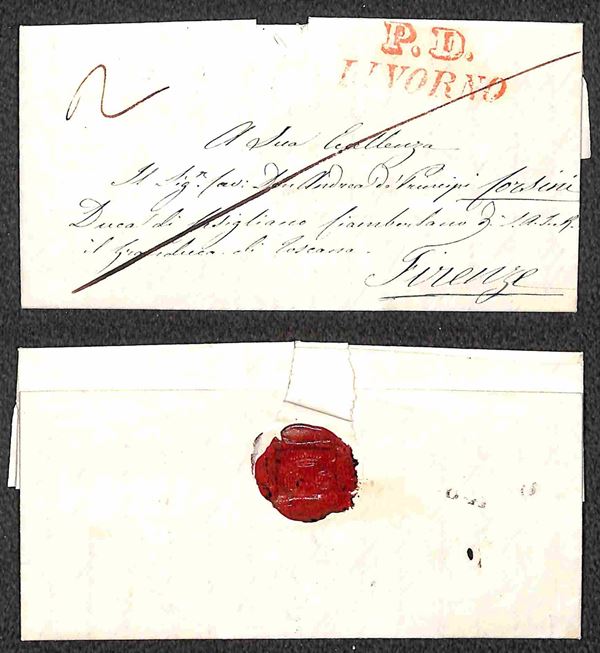 P. D.
LIVORNO
A Sua Eccellenza
Il Sig.r Cav: Don Andrea de' Principi Corsini
Duca di Casigliano Ciamberlano di S.A.I.R.
il Granduca di Toscana.
Firenze